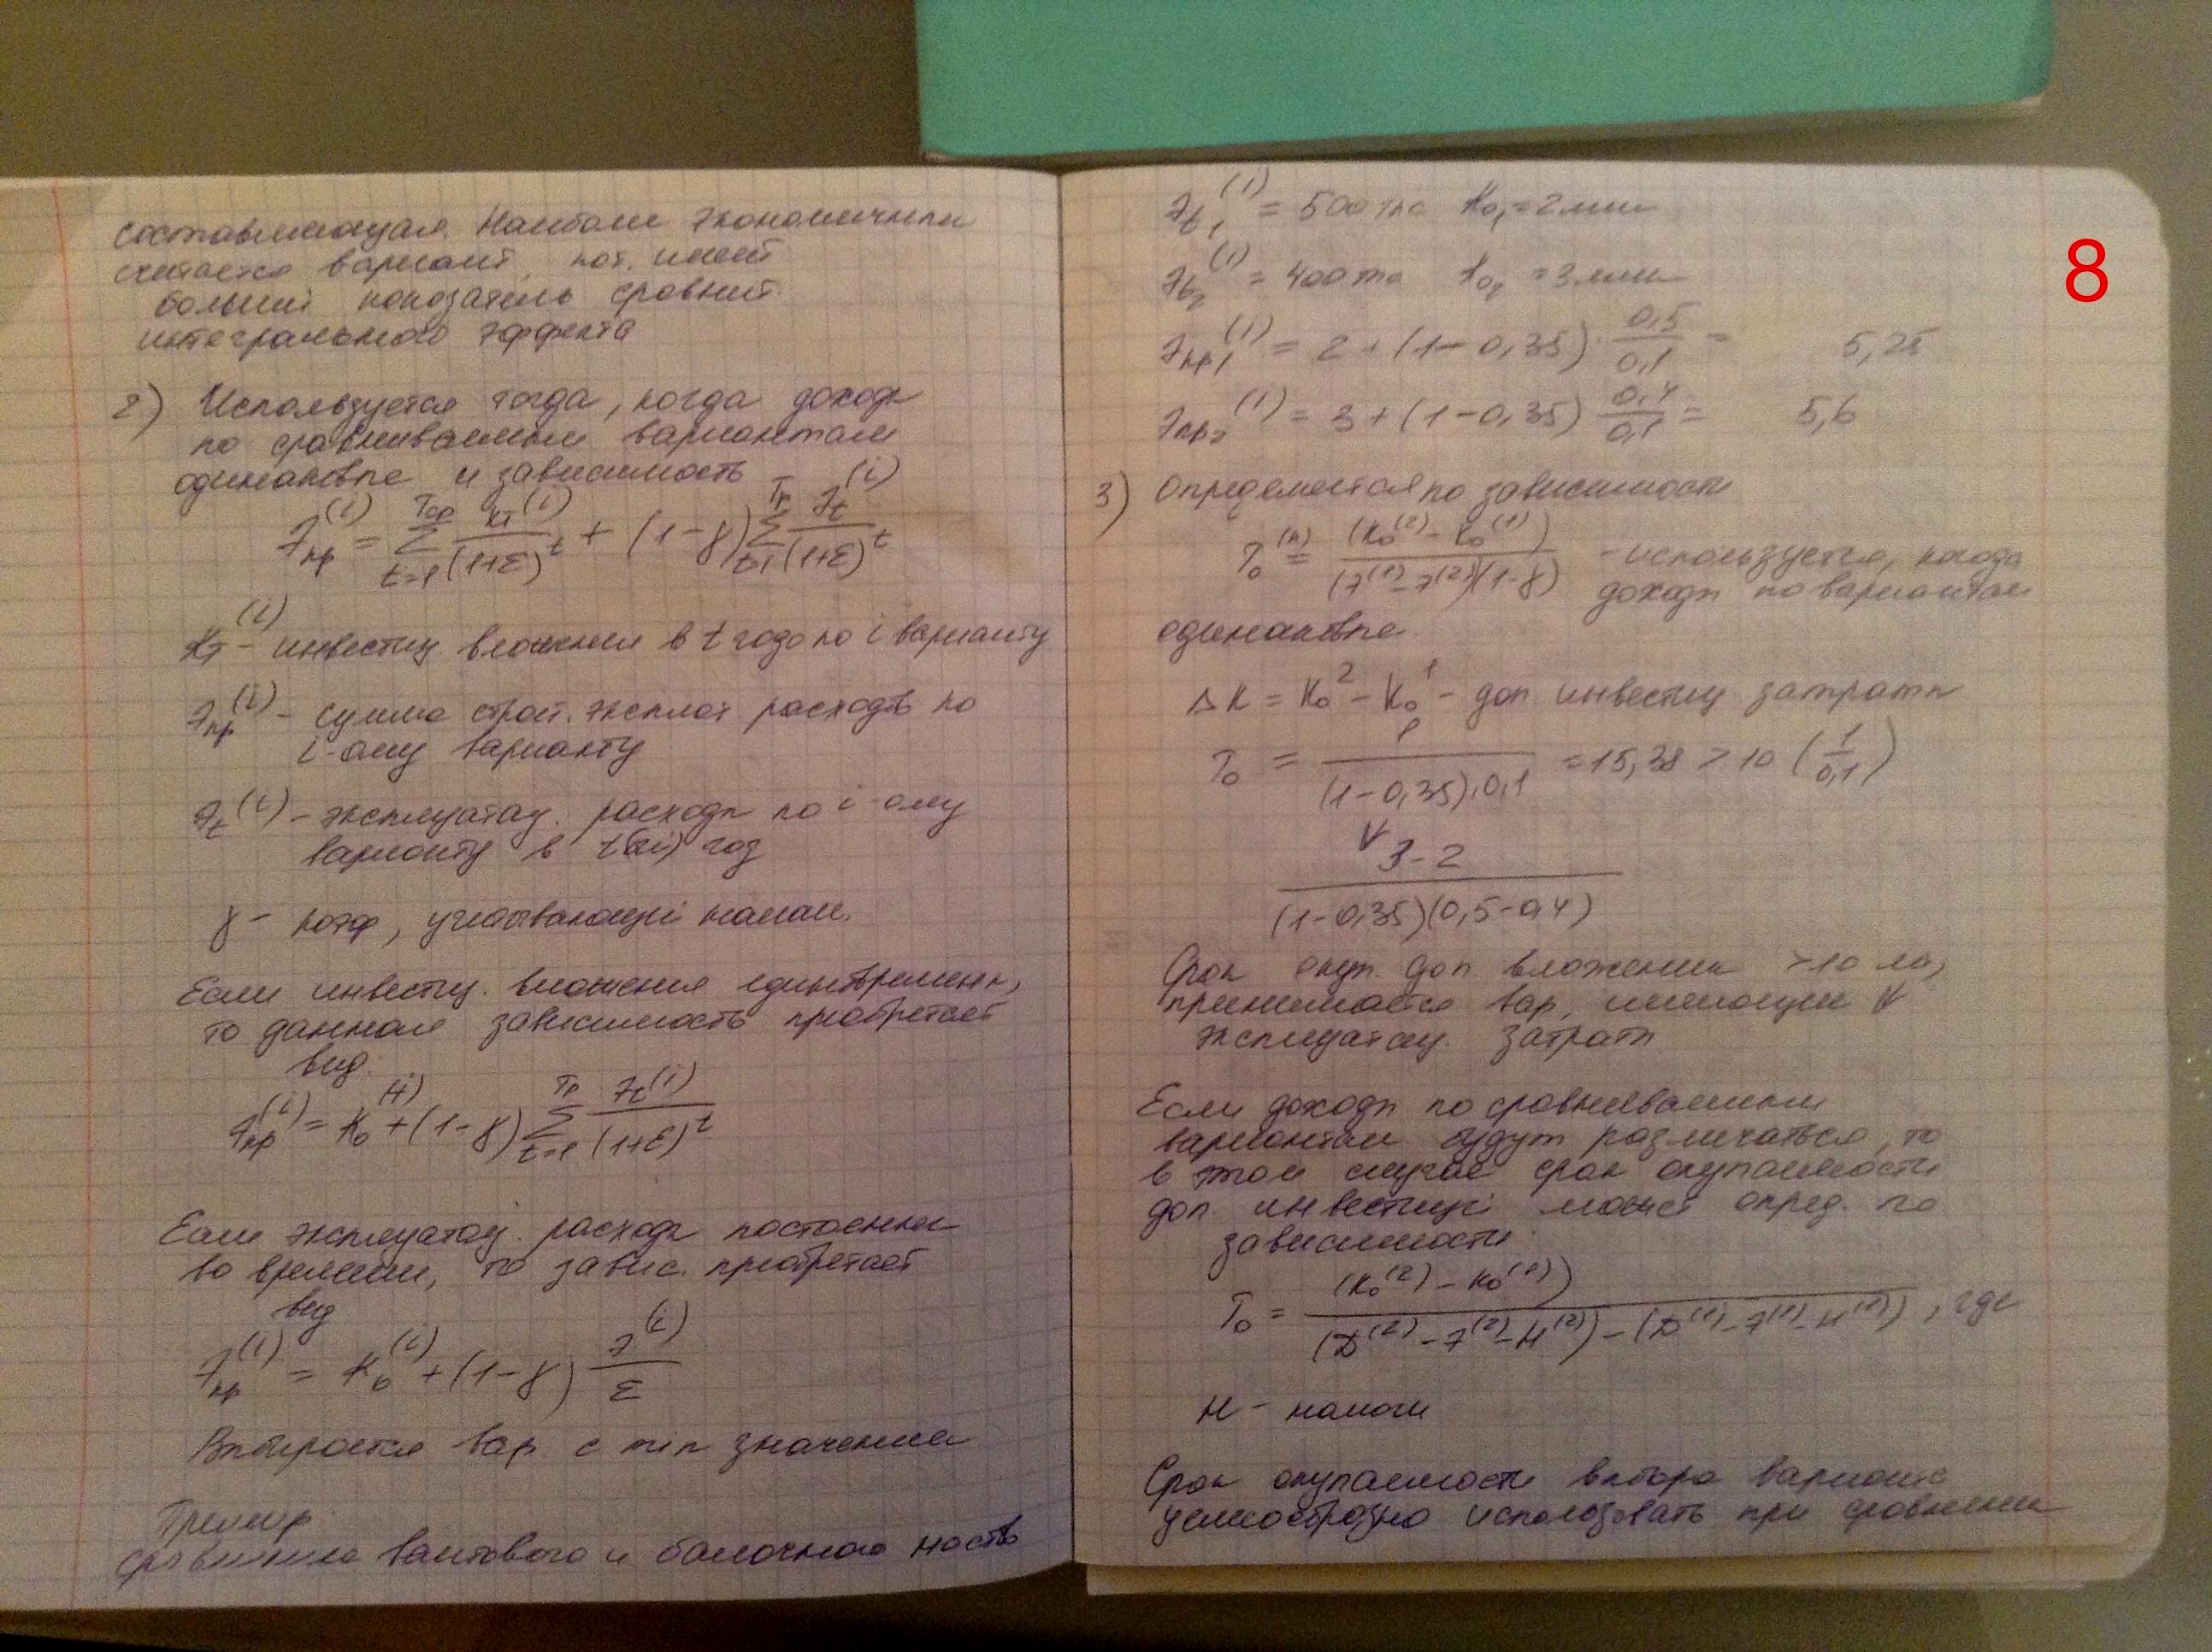 составляющая. Наиболее экономичным
считается вариант, кот. имеет
больший показатель сравнит.
интегрального эффекта
2) Используется тогда, когда доходы
по сравниваемым вариантам
одинаковые и зависимость
Эпр^(i) = Σ_{t=1}^{Тстр} Kт^(i)/(1+ε)^t + (1-γ) Σ_{t=1}^{Тр} Эt^(i)/(1+ε)^t
Kт^(i) - инвестиц вложения в t году по i варианту
Эпр^(i) - сумма строит. эксплат расходов по
i-ому варианту
Эt^(i) - эксплуатац. расходы по i-ому
варианту в t год
γ - коэф, учитывающий налог.
Если инвестиц. вложения единовременны,
то данная зависимость приобретает
вид:
Эпр^(i) = K0^(i) + (1-γ) Σ_{t=1}^{Тр} Эt^(i)/(1+ε)^t
Если эксплуатац. расходы постоянны
во времени, то завис. приобретает
вид
Эпр^(i) = K0^(i) + (1-γ) Э^(i)/ε
Выбирается вар с min значением
Пример
сравнение вантового и балочного моста
Эt1^(1) = 500 тыс K01 = 2 млн
Эt2^(1) = 400 тыс K02 = 3 млн
8
Эпр1^(1) = 2 + (1-0,35) · 0,5/0,1 = 5,25
Эпр2^(1) = 3 + (1-0,35) 0,4/0,1 = 5,6
3) Определяется по зависимости
T0^(н) = (K0^(2) - K0^(1))/((Э^(1) - Э^(2))(1-γ)) - используется, когда
доходы по вариантам
одинаковые.
ΔK = K0^2 - K0^1 - доп инвестиц затраты
T0 = 1/((1-0,35)·0,1) = 15,38 > 10 (1/0,1)
3-2/((1-0,35)(0,5-0,4))
Срок окуп. доп. вложении >10 ле,
принимается вар, имеющие V
эксплуатац. затраты
Если доходы по сравниваемым
вариантам будут различаться, то
в этом случае срок окупаемости
доп. инвестиций может опред. по
зависимости:
T0 = (K0^(2) - K0^(1))/((D^(2) - Э^(2) - H^(2)) - (D^(1) - Э^(1) - H^(1))), где
H - налоги
Срок окупаемости выбора варианта
целесообразно использовать при сравнении